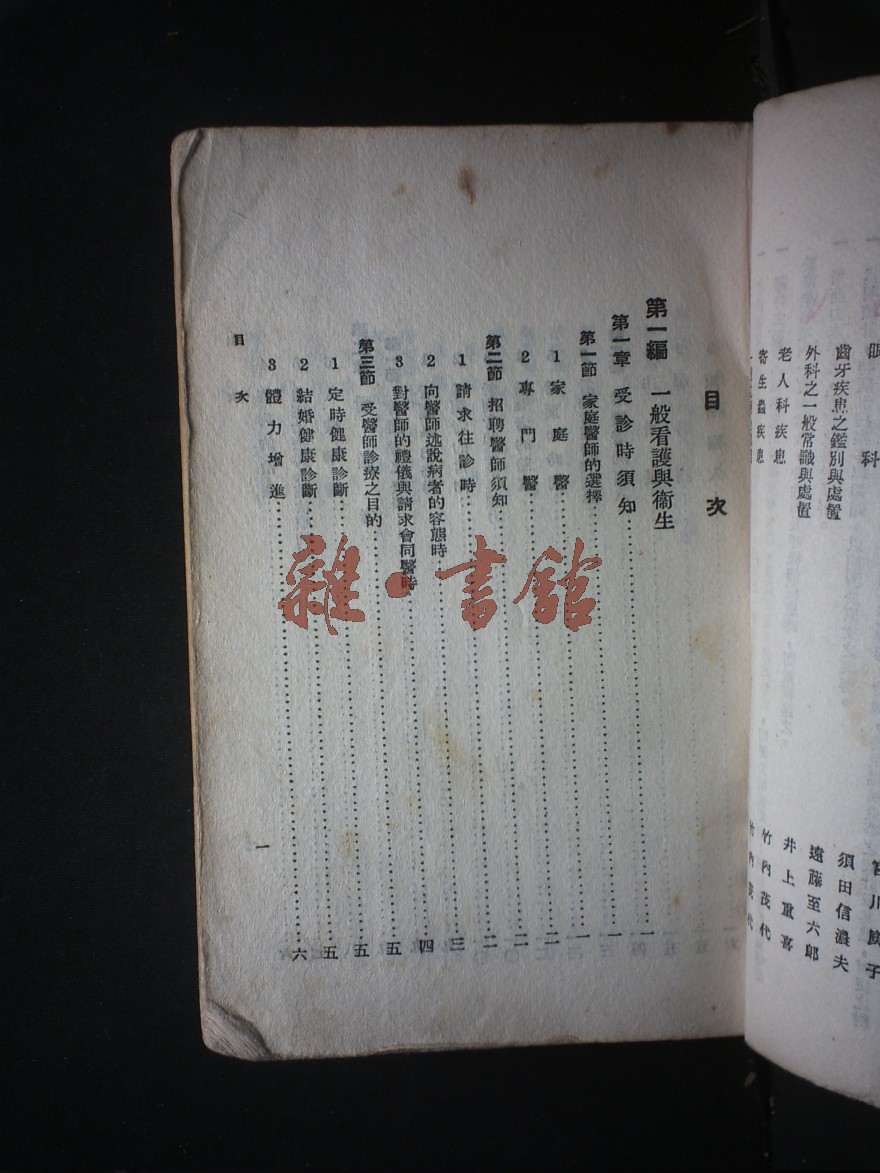 眼科
齒牙疾患之鑑別與處置 須田信濃夫
外科之一般常識與處置 遠藤至六郎
老人科疾患 井上重喜
寄生蟲疾患 竹內茂代
目次
第一編 一般看護與衞生……一
第一章 受診時須知……一
第一節 家庭醫師的選擇……一
1 家庭醫……二
2 專門醫……二
第二節 招聘醫師須知……二
1 請求往診時……三
2 向醫師述說病者的容態時……四
3 對醫師的禮儀與請求會同醫時……五
第三節 受醫師診療之目的……五
1 定時健康診斷……五
2 結婚健康診斷……五
3 體力增進……六
目次 一
雜·書館